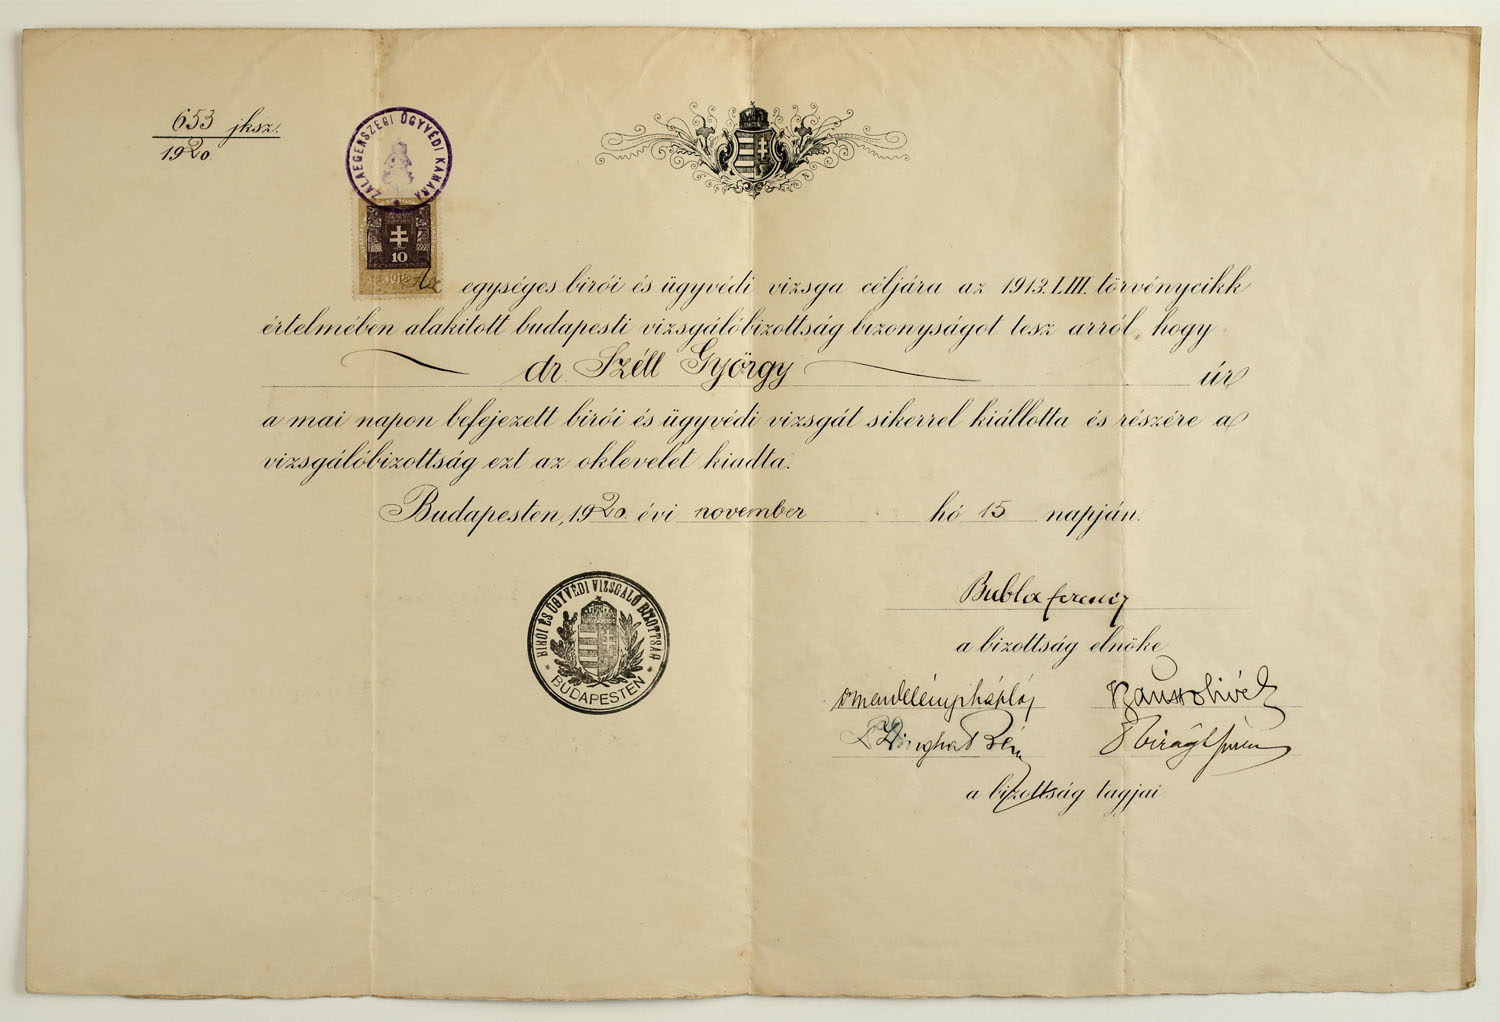 653 jksz.
1920.
ZALAEGERSZEGI ÜGYVÉDI KAMARA
10
Az egységes birói és ügyvédi vizsga céljára az 1913. LIII. törvénycikk
értelmében alakitott budapesti vizsgálóbizottság bizonyságot tesz arról, hogy
dr. Széll György úr
a mai napon befejezett birói és ügyvédi vizsgát sikerrel kiállotta és részére a
vizsgálóbizottság ezt az oklevelet kiadta.
Budapesten, 1920. évi november hó 15 napján.
BIRÓI ÉS ÜGYVÉDI VIZSGÁLÓ BIZOTTSÁG
BUDAPESTEN
Bubla Ferenc
a bizottság elnöke
a bizottság tagjai